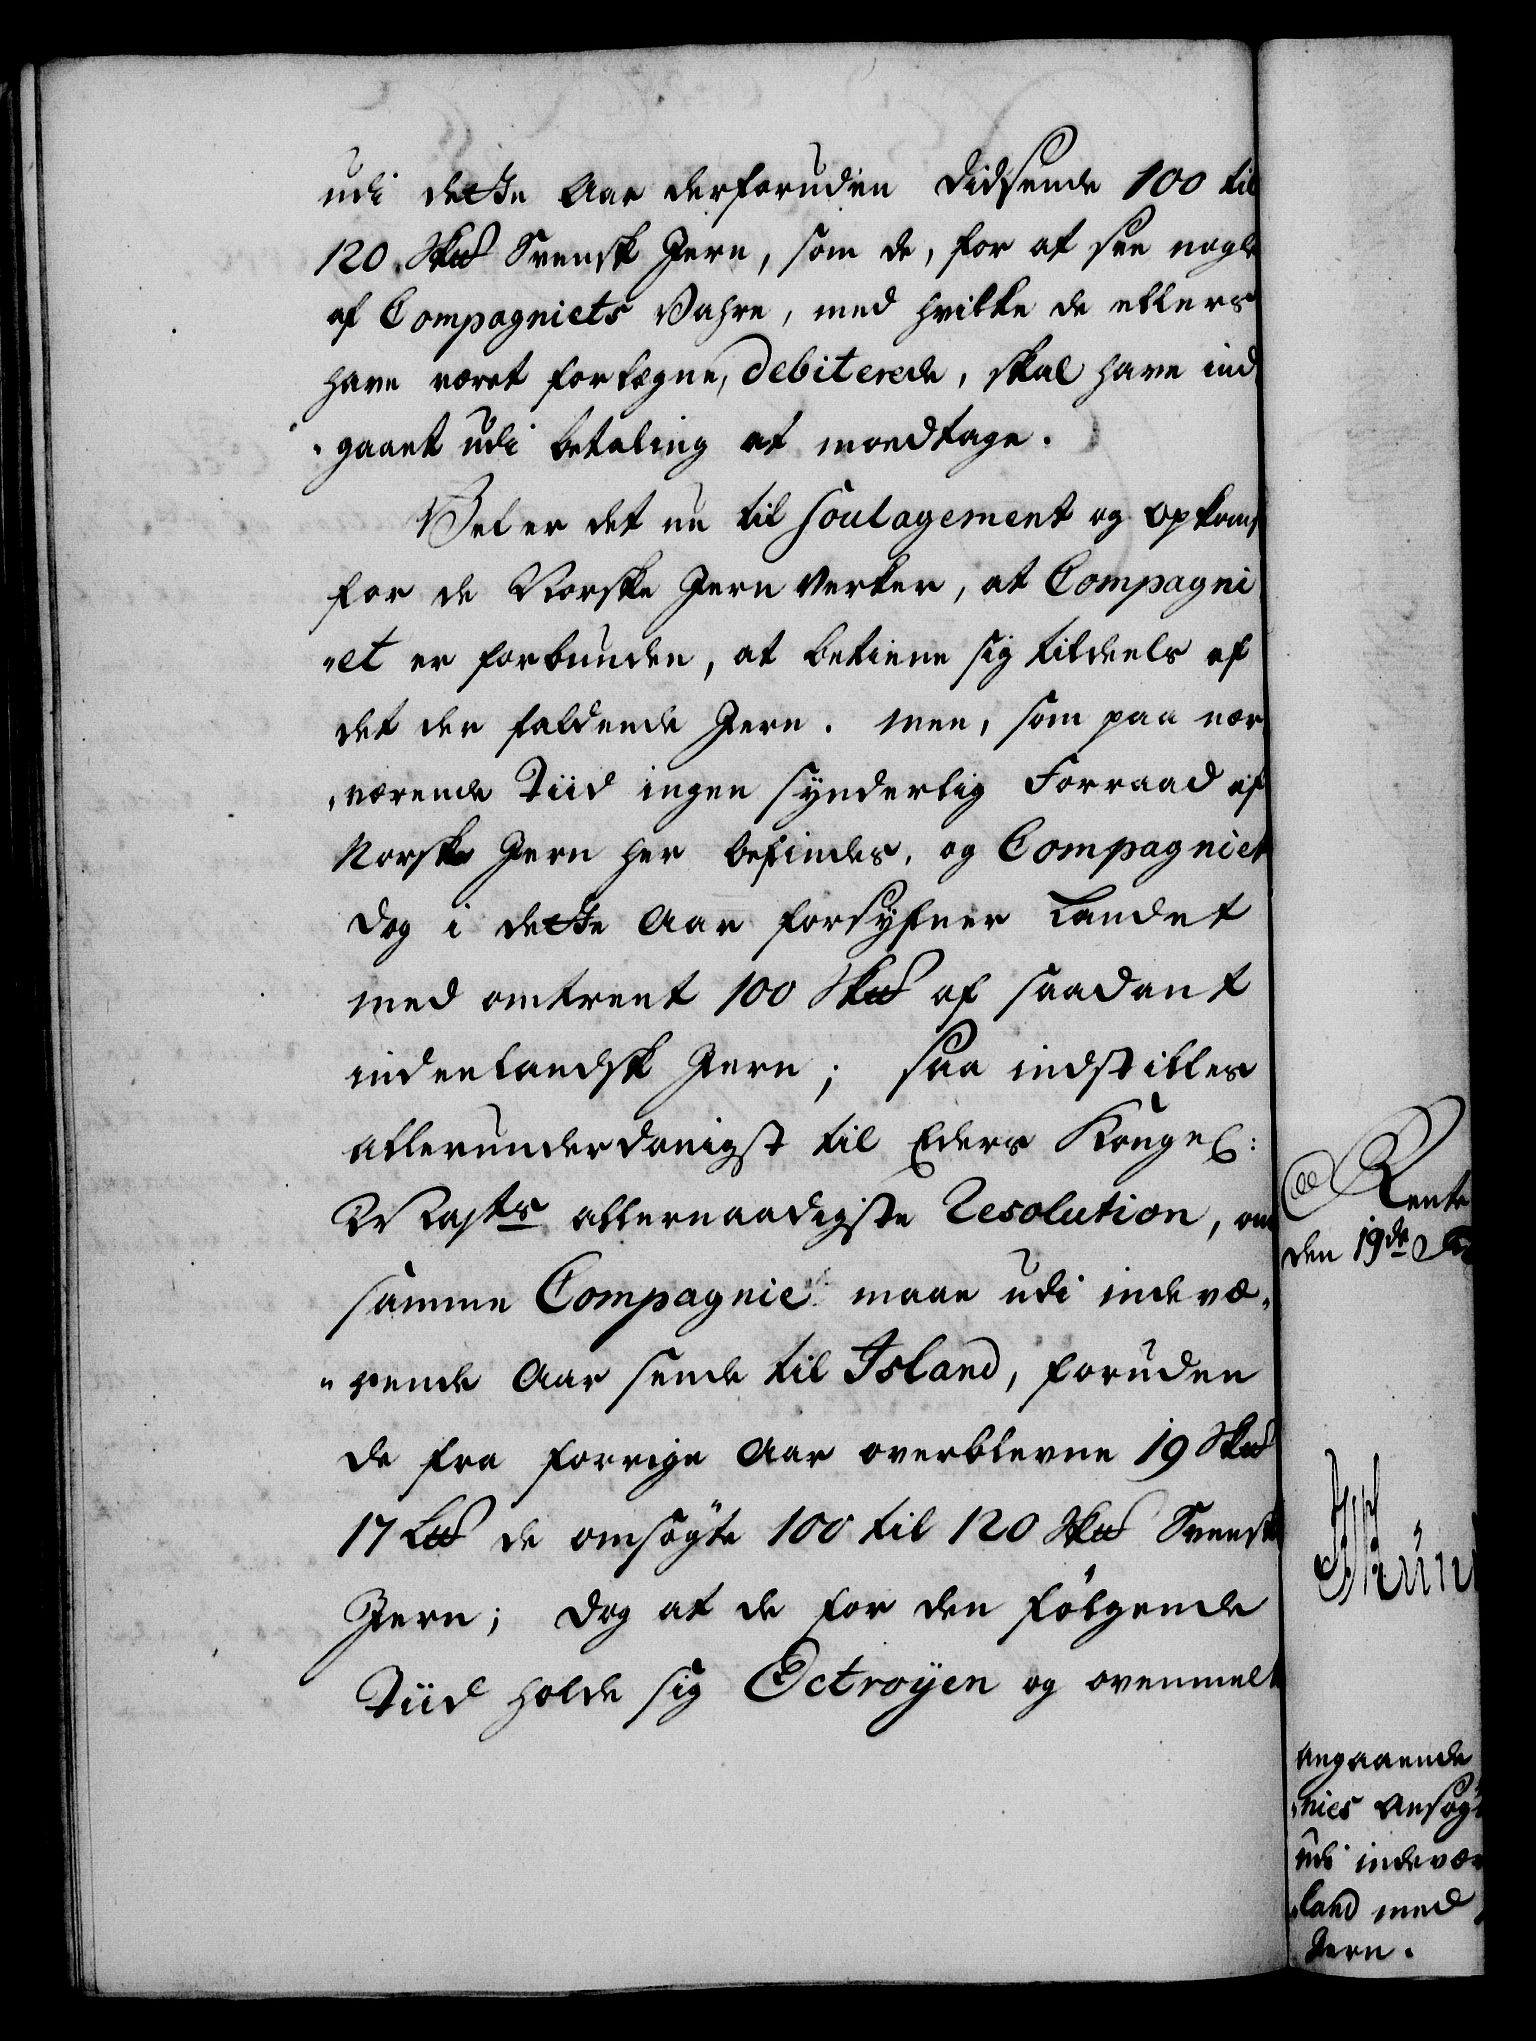 udi dette Aar derforuden didsende 100 til
120 Sk℔ Svensk Jern, som de, for at see nogle
af Compagniets Vahre, med hvilke de ellers
have været forlægne, debiterede, skal have ind
„gaaet udi betaling at modtage.
Vel er det nu til Soulagement og opkomst
for de Norske Jern Verker, at Compagni
„et er forbunden, at betiene sig tildeels af
det der faldende Jern. men, som paa nær
„værende Tiid ingen synderlig Forraad af
Norske Jern her befindes, og Compagniet
dog i dette Aar forsyner Landet
med omtrent 100 Sk℔ af saadant
indenlandsk Jern; saa indstilles
allerunderdanigst til Eders Kongel:
Mayts allernaadigste Resolution, om
samme Compagnie maae udi indevæ„
„rende Aar sende til Island, foruden
de fra forrige Aar overblevne 19 Sk℔
17 L℔ de omsøgte 100 til 120 Sk℔ Svensk
Jern; dog at de for den følgende
Tiid holde sig Octroyen og ovenmelt
Rente
den 19de
angaaende
„nies Ansøg
udi indevær
„land med
Jern.